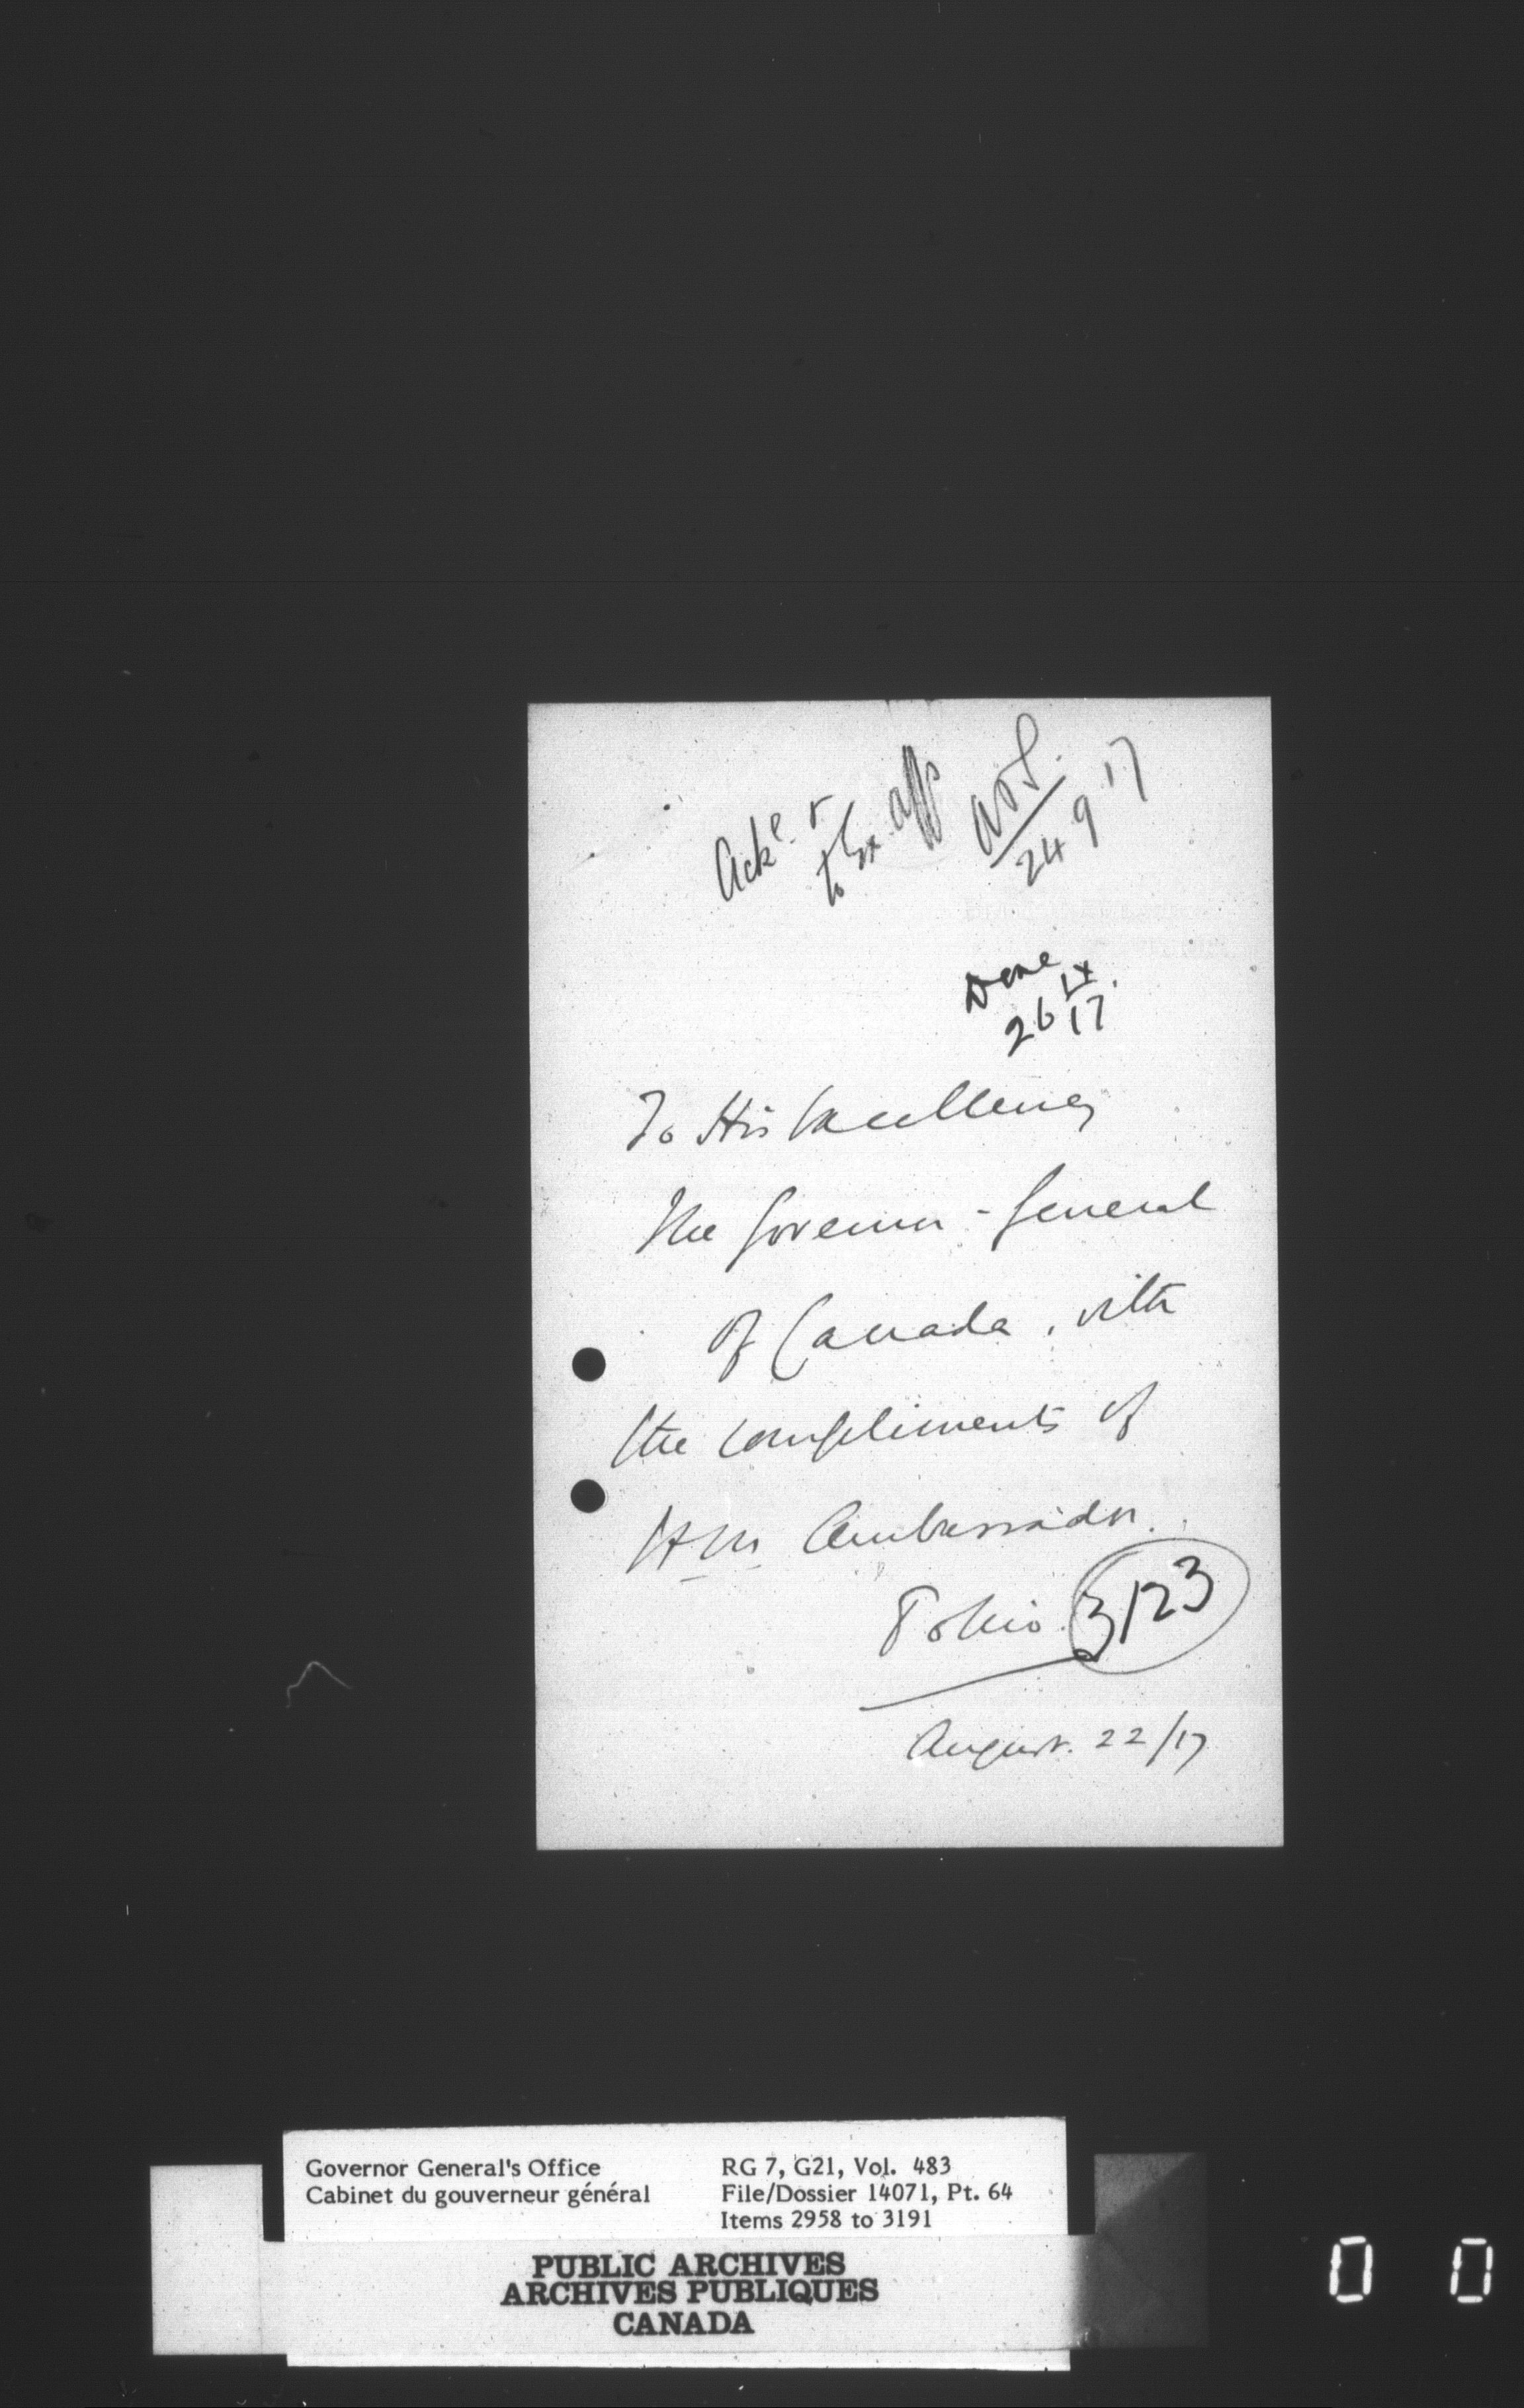 Ack^e. &
to Ex. affs
24 9 17
Done
26 IX 17.
To His Excellency
The Governor-General
of Canada, with
the compliments of
H.M. Ambassador.
Tokio.
3123
August. 22/17
Governor General's Office
Cabinet du gouverneur général
RG 7, G21, Vol. 483
File/Dossier 14071, Pt. 64
Items 2958 to 3191
PUBLIC ARCHIVES
ARCHIVES PUBLIQUES
CANADA
0 0